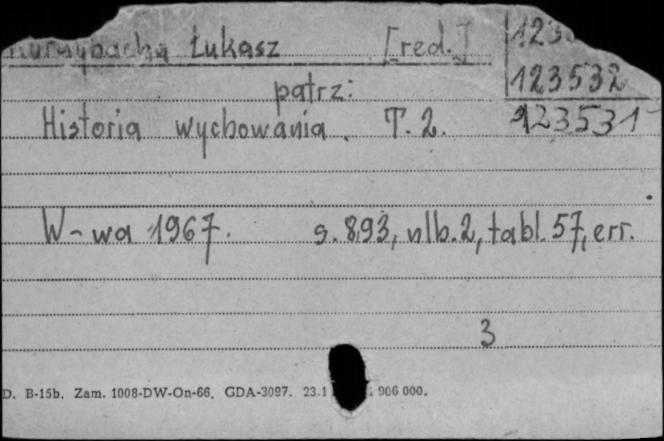 Łukasz [red.]
123532
patrz:
Historia wychowania. T. 2. 123531
W-wa 1967. s. 893, nlb. 2, tabl. 57, err.
3
D. B-15b. Zam. 1008-DW-On-66. GDA-3097. 23.1 906 000.